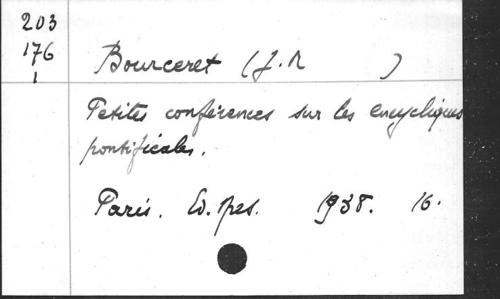 203
176
1
Bourceret (J. R )
Petites conférences sur les encycliques
pontificales.
Paris. Ed. Spes. 1938. 16.